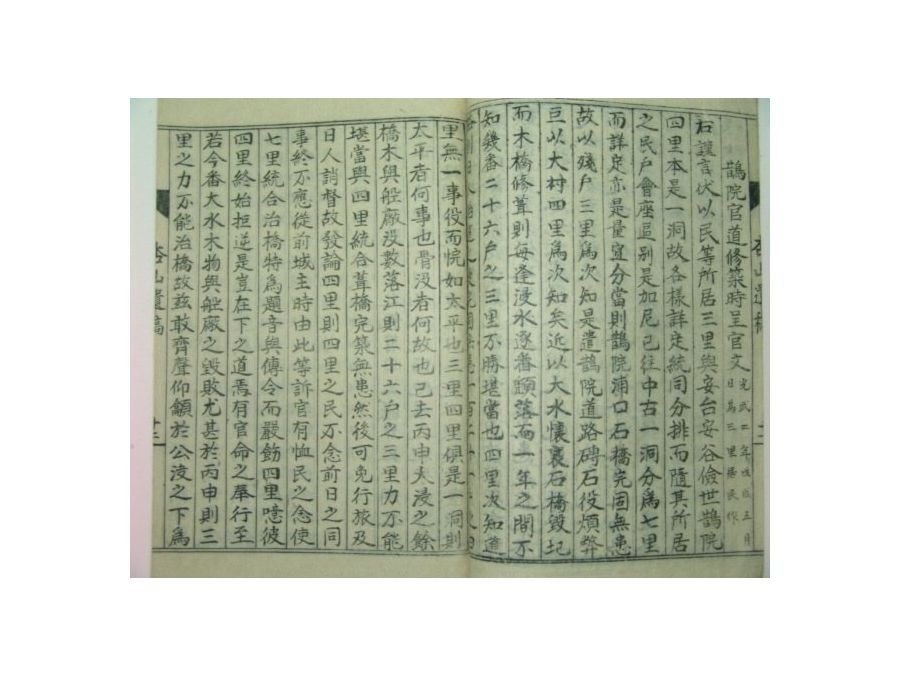 鵲院官道修築時呈官文 光武二年戊戌三月日爲三里梁民作
右謹言伏以民等所居三里與安台安谷儉世鵲院
四里本是一洞故各樣詳定統同分排而隨其所居
之民戶會座區別是加尼已往中古一洞分爲七里
而詳定亦是量宜分當則鵲院浦口石橋完固無患
故以殘戶三里爲次知是遣鵲院道路磚石役煩弊
巨以大村四里爲次知矣近以大水懷襄石橋毀圮
而木橋修葺則每逢浸水逐番頹落而一年之間不
知幾番二十六戶之三里不勝堪當也四里次知道
里無一事役而恍如太平也三里四里俱是一洞則
太平者何事也骨没者何故也已去丙申大浸之餘
橋木與舩厰没數落江則二十六戶之三里力不能
堪當與四里統合葺橋完築無患然後可免行旅及
日人誚督故發論四里則四里之民不念前日之同
事終不應從前城主時由此等訴官有恤民之念使
七里統合治橋特爲題音與傳令而嚴飭四里噫彼
四里終始拒逆是豈在下之道焉有官命之奉行至
若今番大水木物與舩厰之毀敗尤甚於丙申則三
里之力不能治橋故玆敢齊聲仰籲於公決之下爲
杏山遺稿 十三